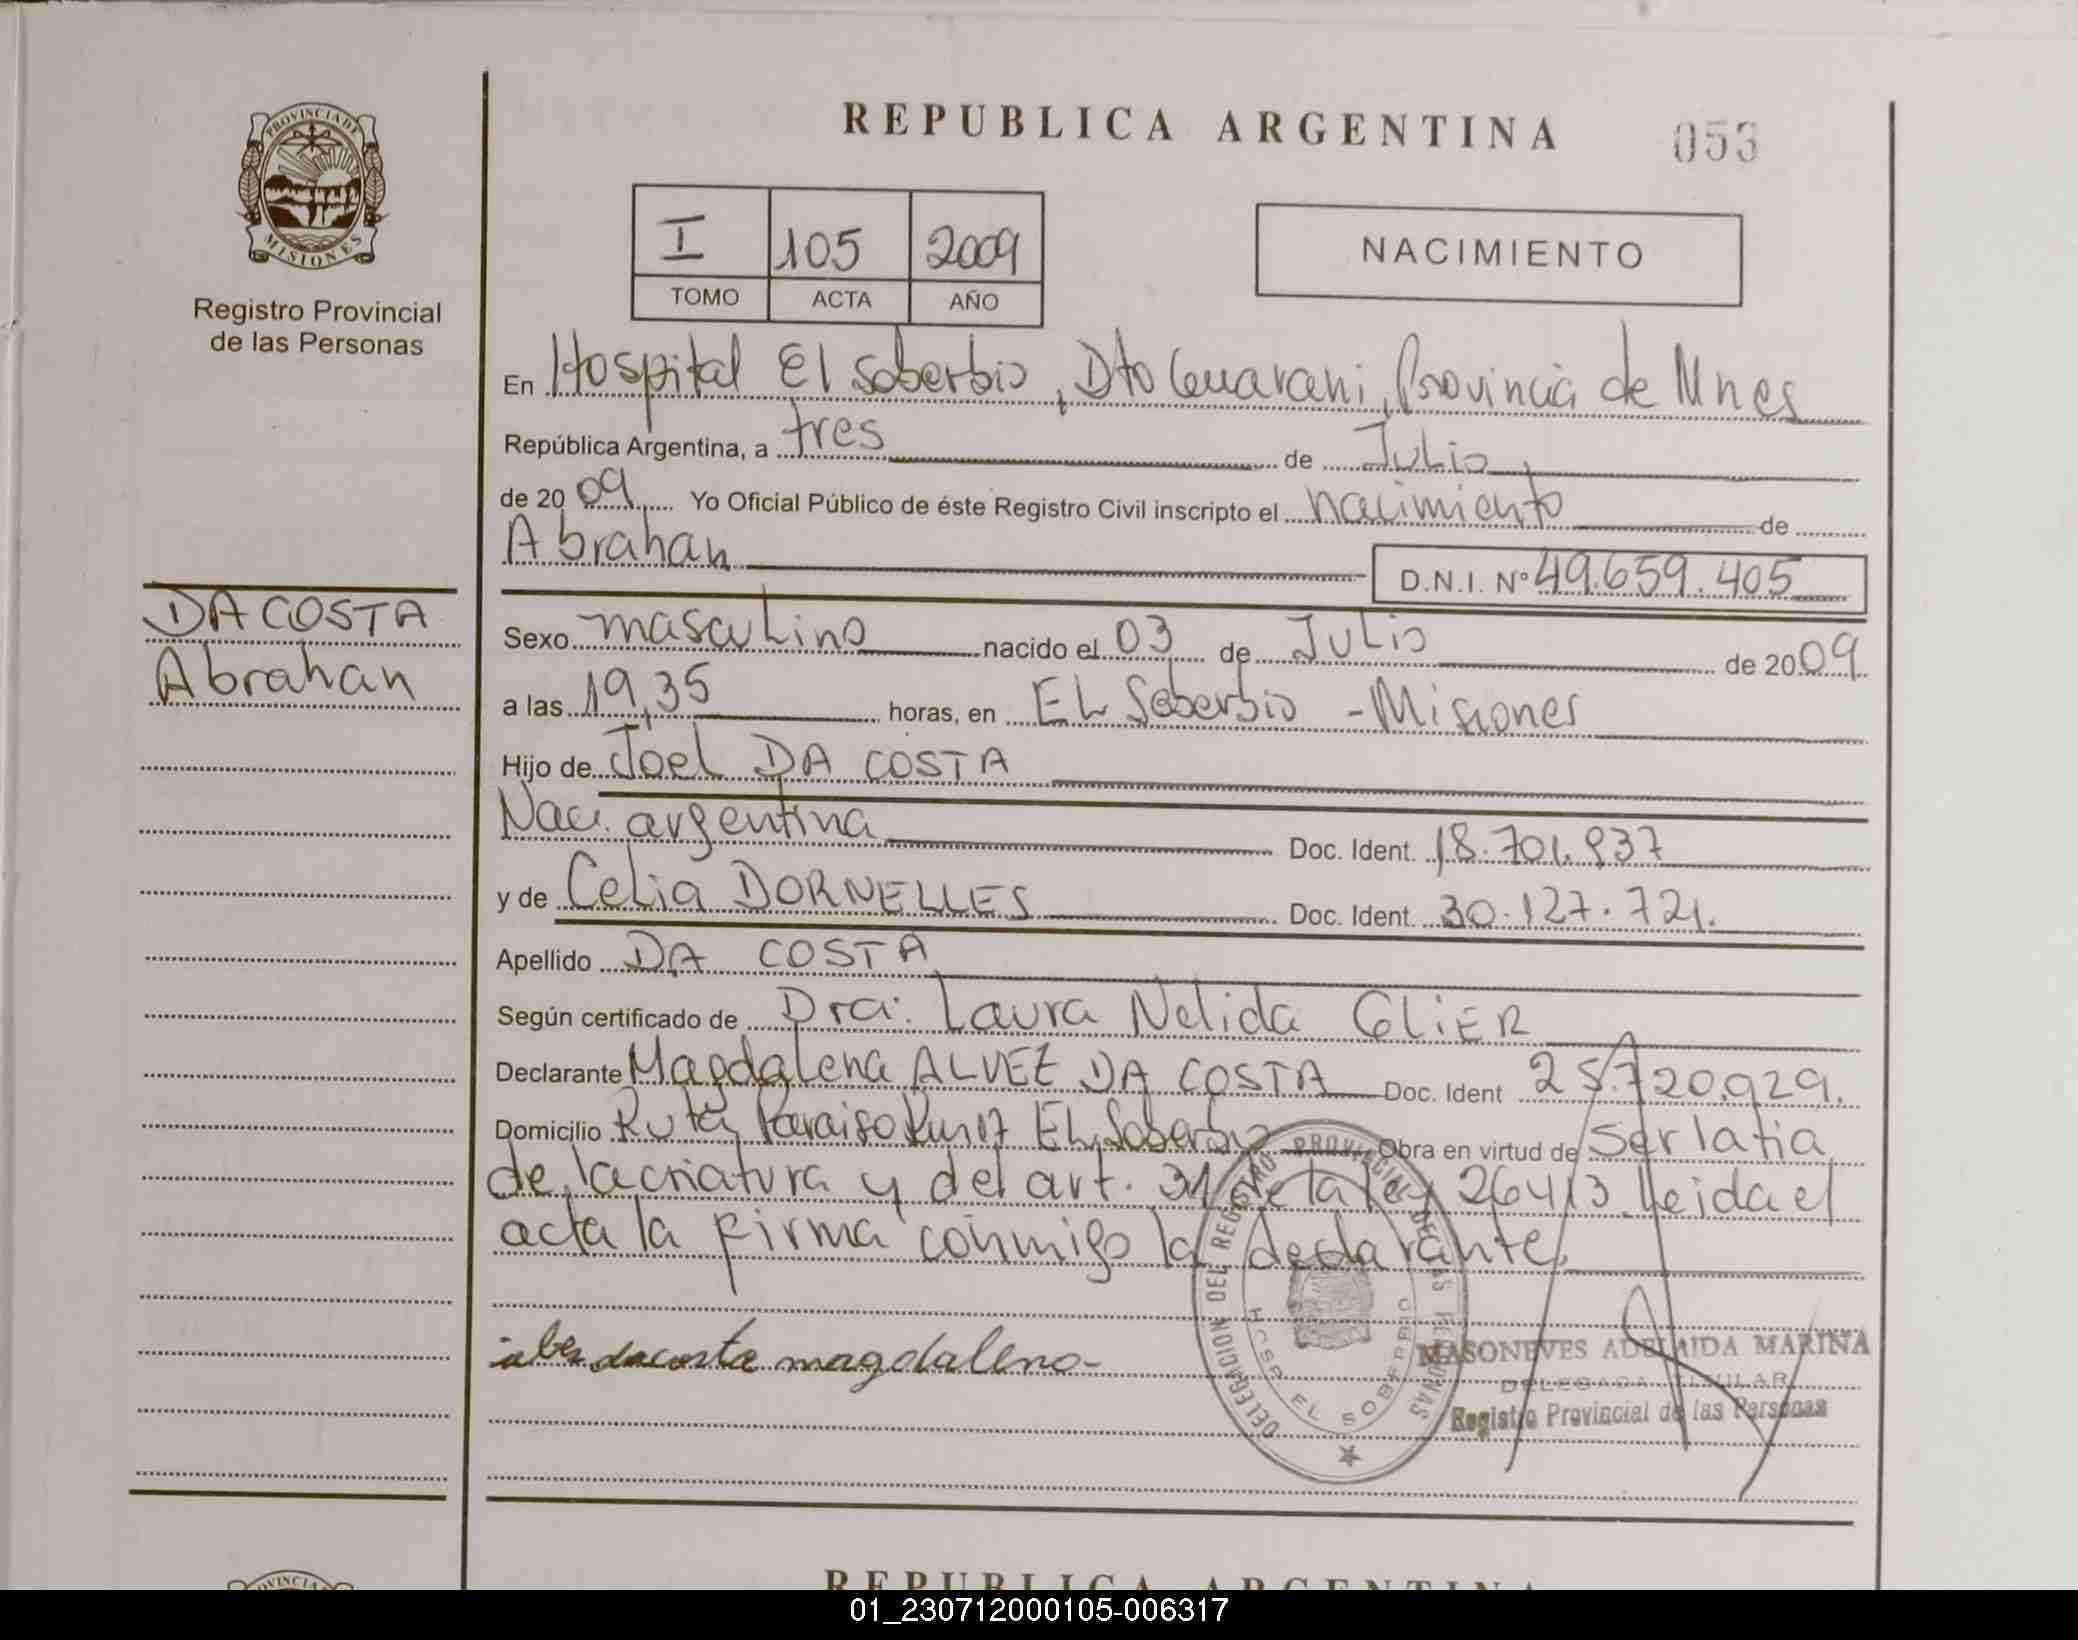 PROVINCIA DE
MISIONES
Registro Provincial
de las Personas
DA COSTA
Abrahan
REPUBLICA ARGENTINA
053
I 105 2009
TOMO ACTA AÑO
NACIMIENTO
En Hospital El Soberbio, Dto Guarani, Provincia de Mnes
República Argentina, a tres de Julio
de 2009 Yo Oficial Público de éste Registro Civil inscripto el nacimiento de
Abrahan D.N.I. Nº 49.659.405
Sexo masculino nacido el 03 de Julio de 2009
a las 19,35 horas, en EL Soberbio - Misiones
Hijo de Joel DA COSTA
Nac. argentina Doc. Ident. 18.701.937
y de Celia DORNELLES Doc. Ident. 30.127.721.
Apellido DA COSTA
Según certificado de Dra: Laura Nelida GLIER
Declarante Magdalena ALVEZ DA COSTA Doc. Ident 25.720.929.
Domicilio Ruta Paraiso Km 17 EL Soberbio Obra en virtud de ser la tia
de la criatura y del art. 31 de la ley 26413. Leida el
acta la firma conmigo la declarante.
dacosta magdalena
DELEGACION DEL REGISTRO PROVINCIAL DE LAS PERSONAS
HOSP. EL SOBERBIO
MASONEVES ADELAIDA MARINA
DELEGADA TITULAR
Registro Provincial de las Personas
REPUBLICA ARGENTINA
01_230712000105-006317